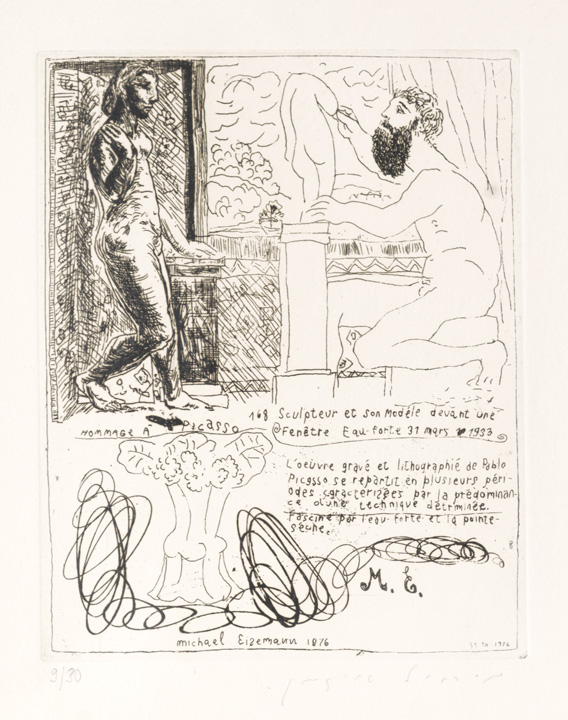 168 Sculpteur et son modèle devant une
Fenêtre Eau-forte 31 mars 1933
HOMMAGE A Picasso
L'oeuvre gravé et lithographié de Pablo
Picasso se repartit en plusieurs péri-
odes caracterizées par la prédominan-
ce d'une technique détrminée.
Fasciné par l'eau-forte et la pointe-
sèche.
M. E.
michael Eizemann 1876
9/30